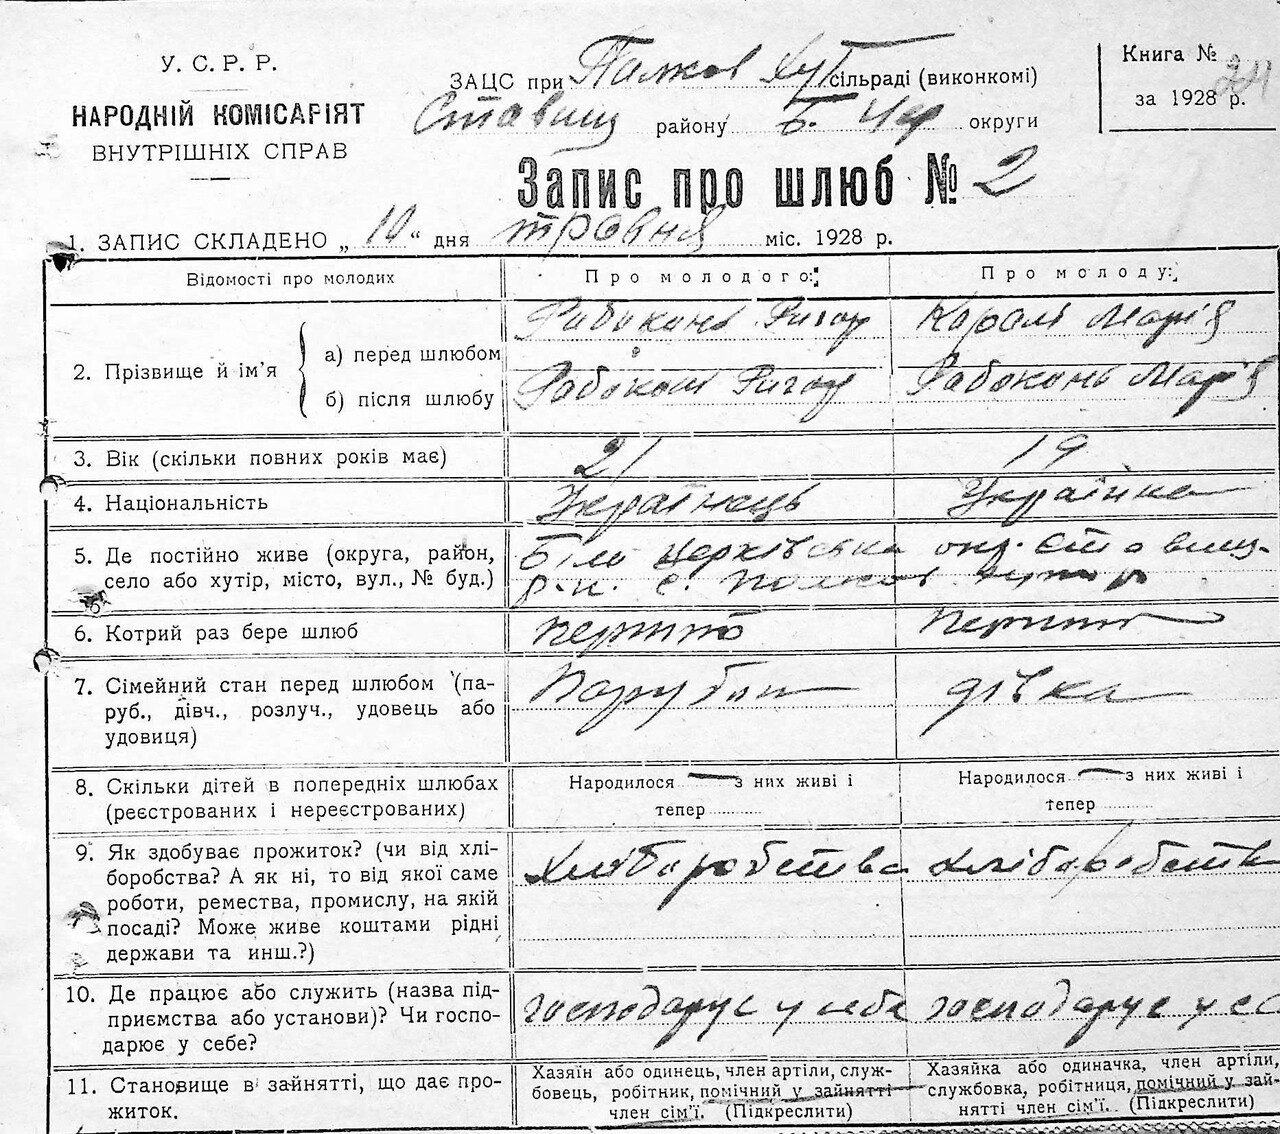 У. С. Р. Р.
НАРОДНІЙ КОМІСАРІЯТ
ВНУТРІШНІХ СПРАВ
ЗАЦС при Палков Хут сільраді (виконкомі)
Ставищ району Б. Чер округи
Книга №
за 1928 р.
Запис про шлюб № 2
1. ЗАПИС СКЛАДЕНО „ 10 “ дня травня міс. 1928 р.
Відомості про молодих
Про молодого:
Про молоду:
2. Прізвище й ім'я
а) перед шлюбом
Рабоконь Ригор
Король Марія
б) після шлюбу
Рабоконь Ригор
Рабоконь Марія
3. Вік (скільки повних років має)
21
19
4. Національність
Українець
Українка
5. Де постійно живе (округа, район,
село або хутір, місто, вул., № буд.)
Біло Церківська окр. Ставищ.
р-н. с.
6. Котрий раз бере шлюб
перший
перший
7. Сімейний стан перед шлюбом (па-
руб., дівч., розлуч., удовець або
удовиця)
Парубок
дівка
8. Скільки дітей в попередніх шлюбах
(реєстрованих і нереєстрованих)
Народилося — з них живі і
тепер
Народилося — з них живі і
тепер
9. Як здобуває прожиток? (чи від хлі-
боробства? А як ні, то від якої саме
роботи, ремества, промислу, на якій
посаді? Може живе коштами рідні
держави та инш.?)
Хліборобства
хліборобств
10. Де працює або служить (назва під-
приємства або установи)? Чи госпо-
дарює у себе?
господарує у себе
господарує у се
11. Становище в зайнятті, що дає про-
житок.
Хазяїн або одинець, член артіли, служ-
бовець, робітник, помічний у зайнятті
член сім'ї. (Підкреслити)
Хазяйка або одиначка, член артіли,
службовка, робітниця, помічний у зай-
нятті член сім'ї. (Підкреслити)